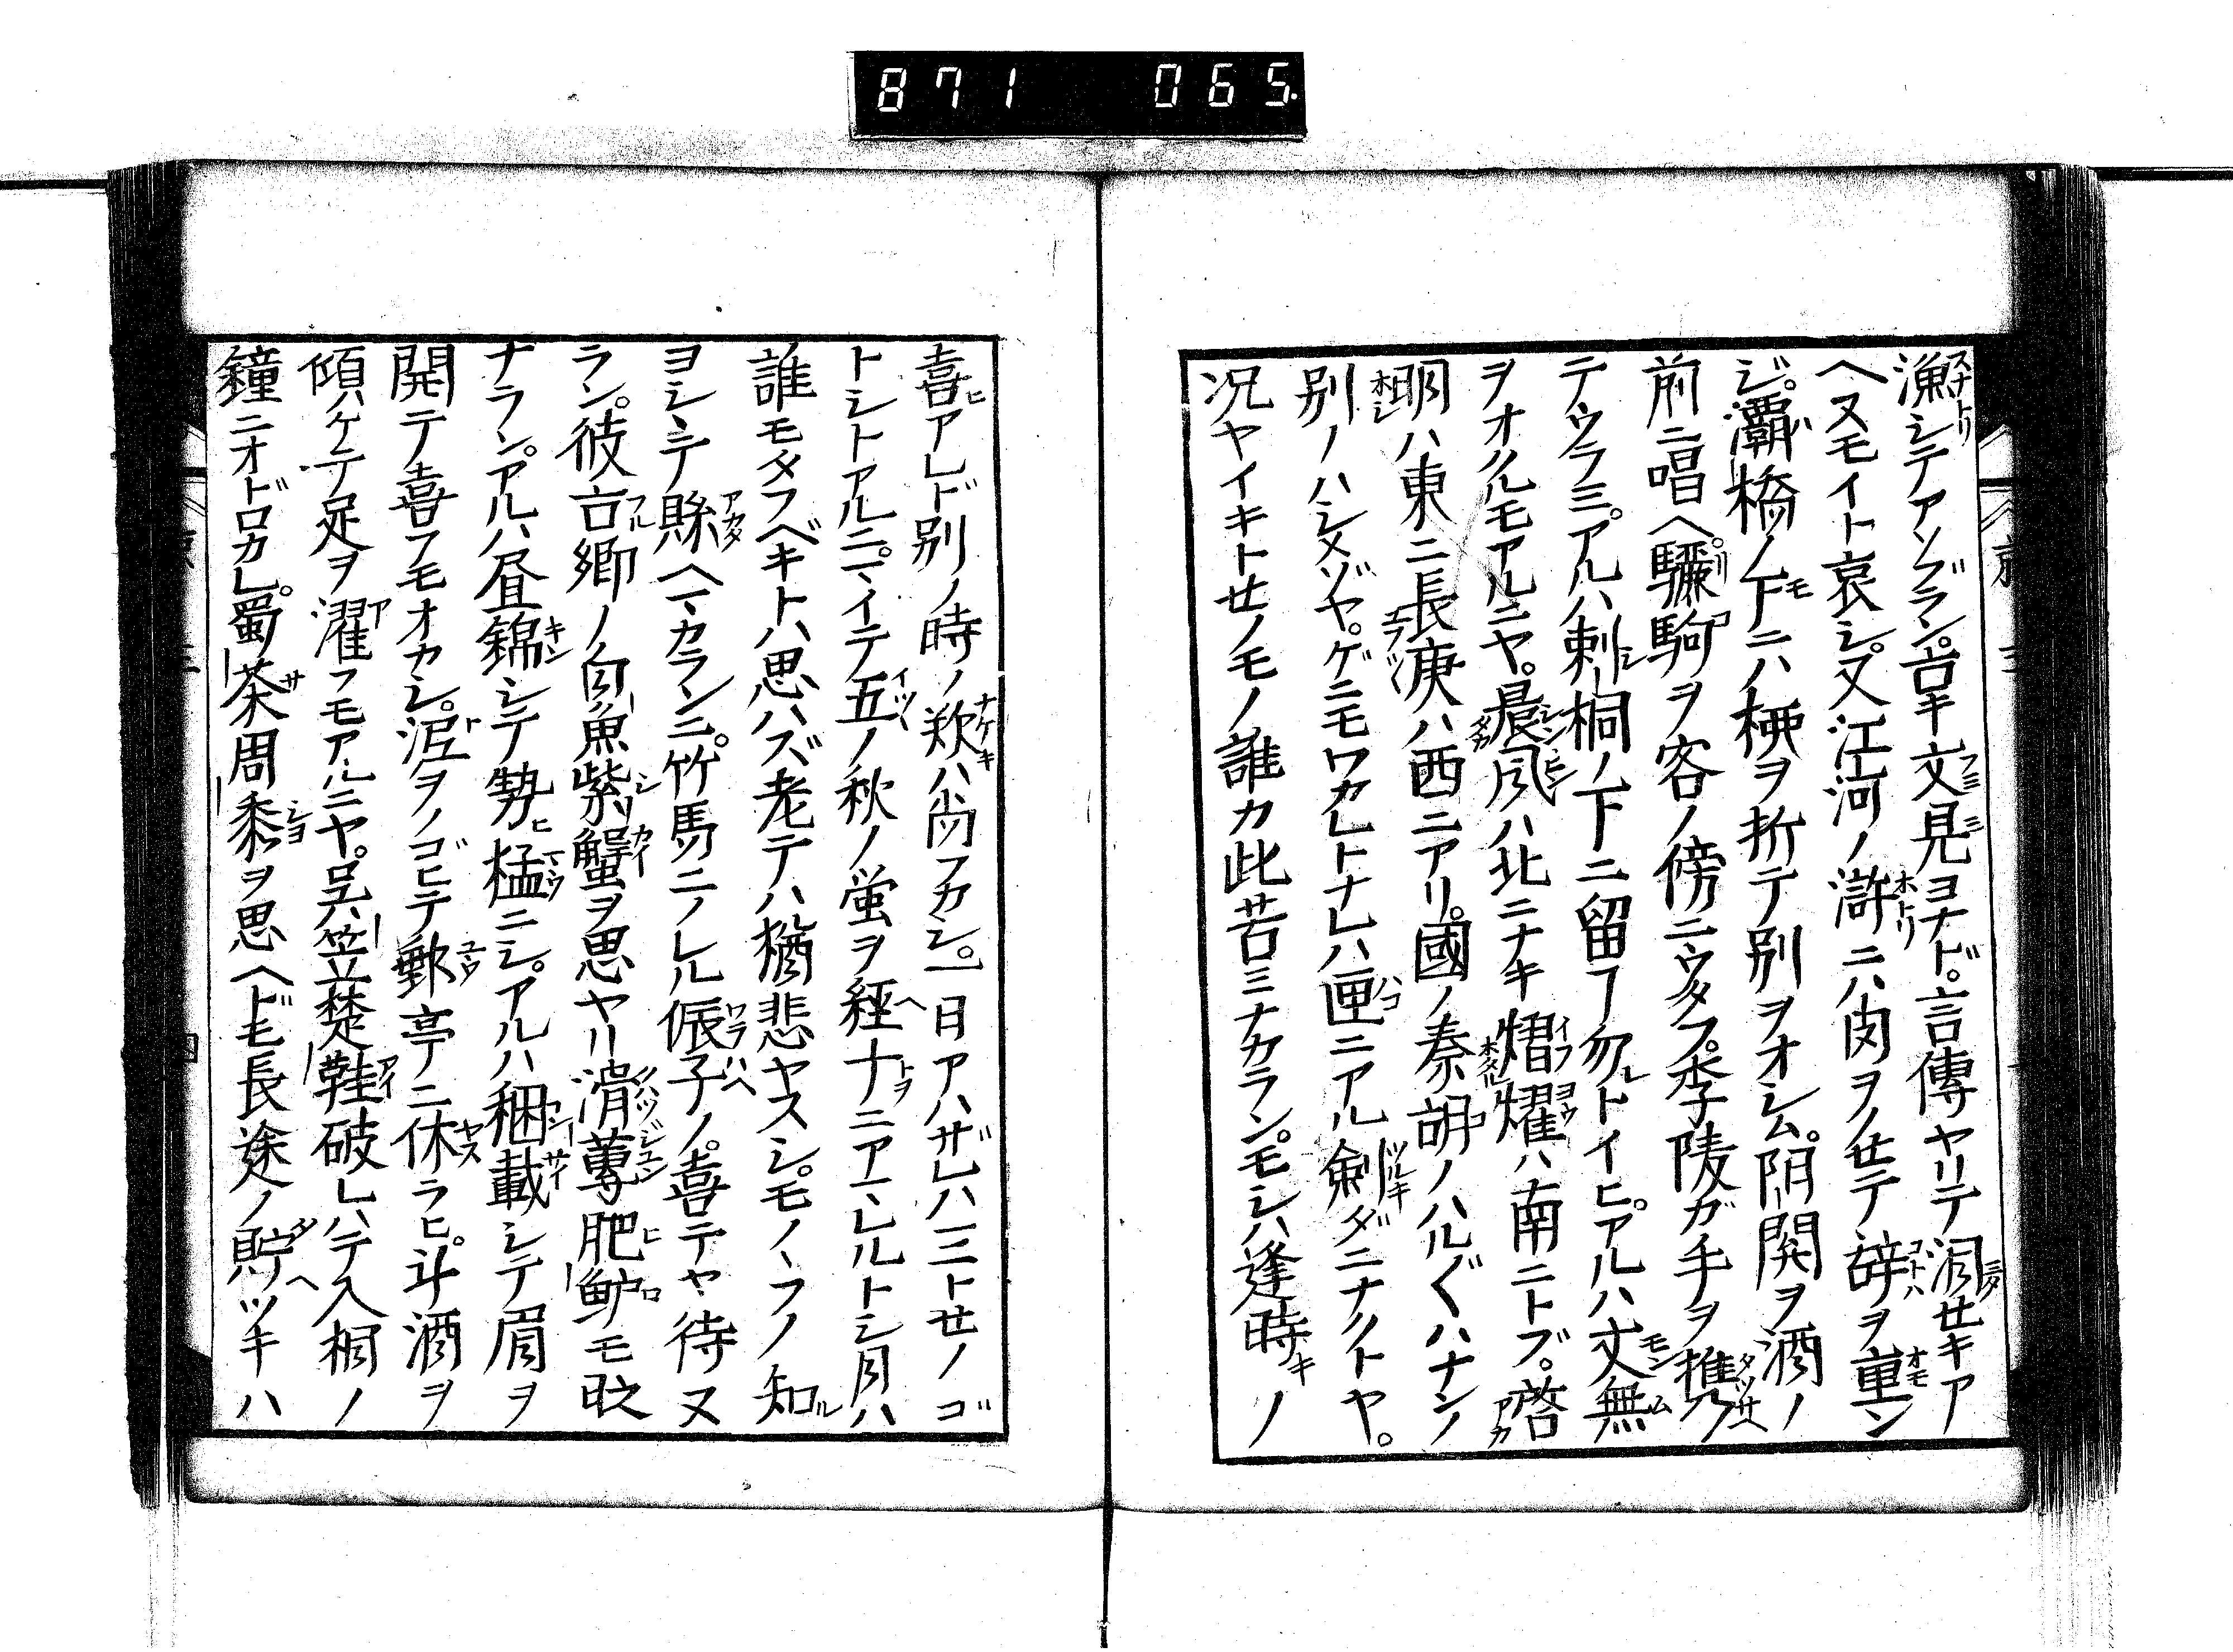 871 065
漁シテアソブラン。吉キ文見ヨナド。言傳ヤリテ涸セキア
ヘヌモイト哀シ。又江河ノ滸ニハ肉ヲノセテ辞ヲ重ン
ジ。灞橋ノ下ニハ楩ヲ折テ別ヲオシム。陽関ヲ酒ノ
前ニ唱ヘ。驪駒ヲ客ノ傍ニウタフ。李陵ガ手ヲ携
テウラミ。アルハ刺桐ノ下ニ留ヿ勿レトイヒ。アルハ文無
ヲオクルモアルニヤ。晨風ハ北ニナキ熠燿ハ南ニトブ。啓
明ハ東ニ長庚ハ西ニアリ。國ノ秦胡ノハルグハナンノ
別ノハシメゾヤ。ゲニモワカレトナレハ匣ニアル剣ダニナクトヤ。
况ヤイキトセノモノ誰カ此苦ミナカラン。モシハ逢時ノ
喜アレド別ノ時ノ歎ハ尚フカシ。一日アハザレハ三トセノゴ
トシトアルニ。マイテ五ノ秋ノ蛍ヲ経十ニアマレルトシ月ハ
誰モタフベキトハ思ハズ老テハ猶悲ヤスシ。モノヽフノ知
ヨシヽテ縣ヘマカランニ。竹馬ニノレル侲子ノ。喜テヤ待ヌ
ラン。彼古郷ノ白魚紫蟹ヲ思ヤリ滑蓴肥鱸モ旼
ナラン。アルハ昼錦シテ勢猛ニシ。アルハ稛載シテ眉ヲ
開テ喜フモオカシ。浧ヲノゴヒテ郵亭ニ休ラヒ。斗酒ヲ
傾ケテ足ヲ濯フモアルニヤ。呉笠楚鞋破レハテ入相ノ
鐘ニオドロカレ。蜀茶周黍ヲ思ヘドモ長途ノ貯ツキハ